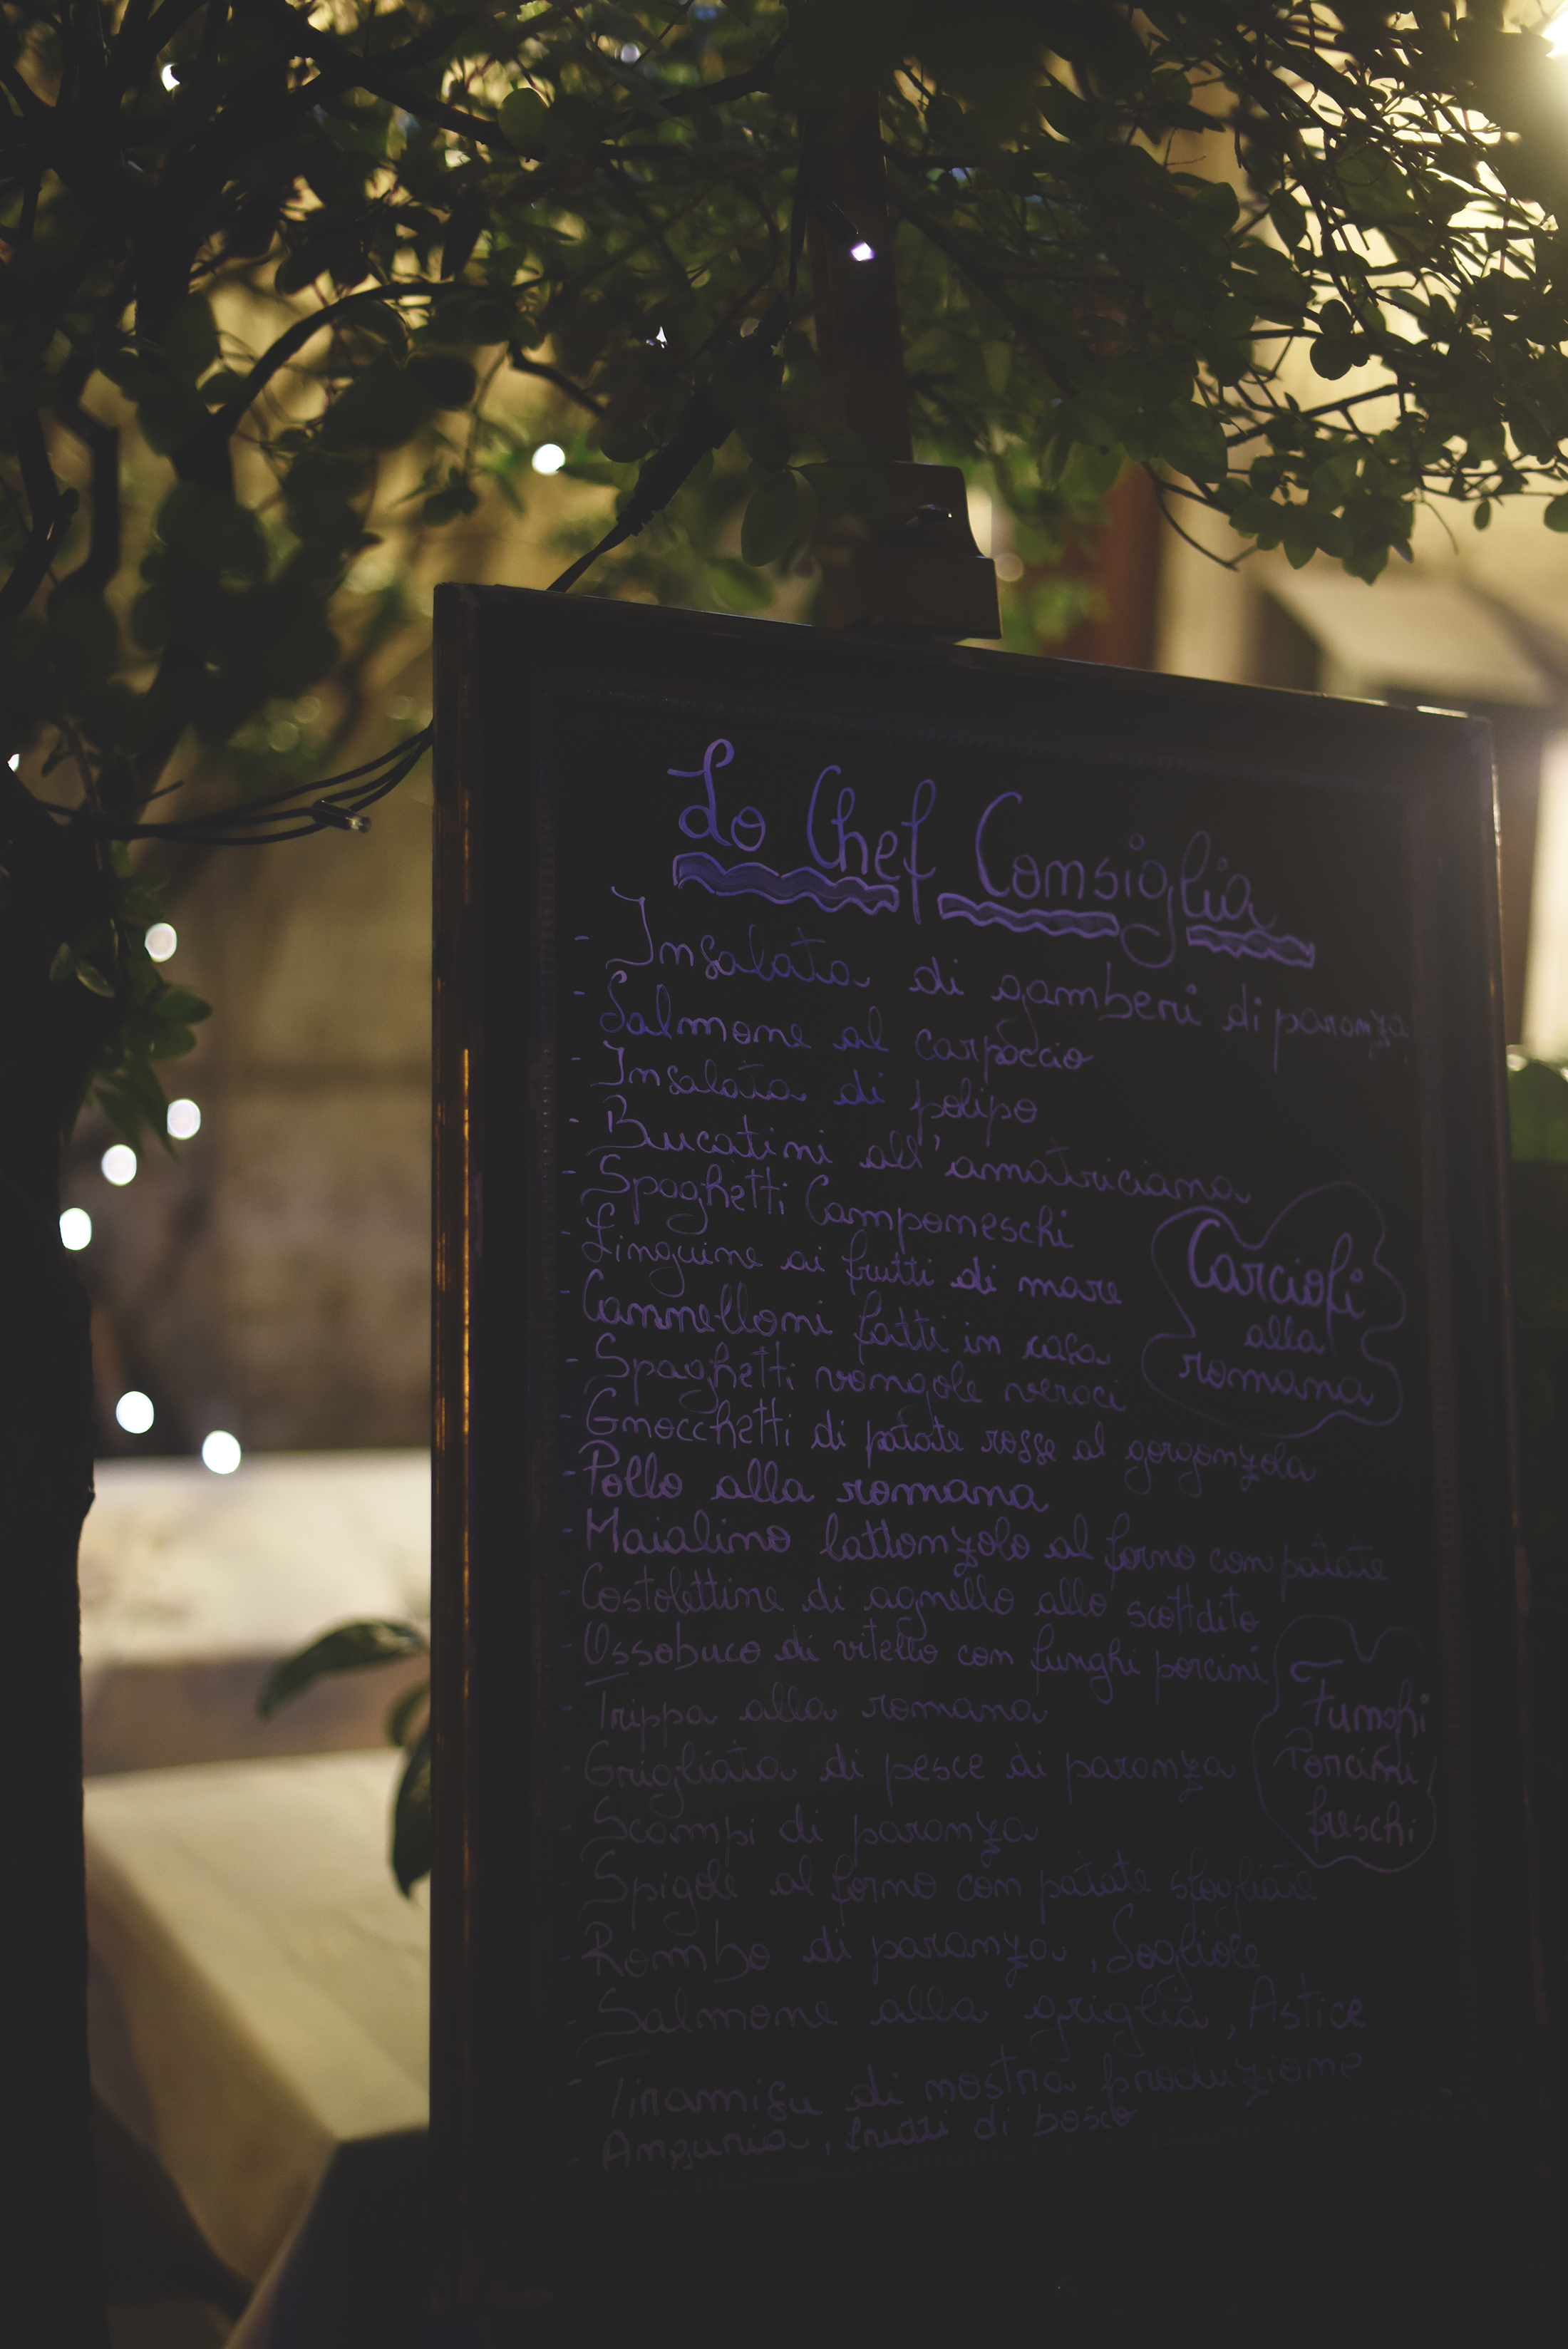 Lo Chef Consiglia
- Insalata di gamberi di paranza
- Salmone al carpaccio
- Insalata di polipo
- Bucatini all'amatriciana
- Spaghetti Camponeschi
- Linguine ai frutti di mare
- Cannelloni fatti in casa
- Spaghetti vongole veraci
- Gnocchetti di patate rosse al gorgonzola
- Pollo alla romana
- Maialino lattonzolo al forno con patate
- Costolettine di agnello allo scottdito
- Ossobuco di vitello con funghi porcini
- Trippa alla romana
- Grigliata di pesce di paranza
- Scampi di paranza
- Spigole al forno con patate sfogliate
- Rombo di paranza, Sogliole
- Salmone alla griglia, Astice
- Tiramisu di nostra produzione
- Anguria, frutti di bosco
Carciofi
alla
romana
Funghi
Porcini
freschi